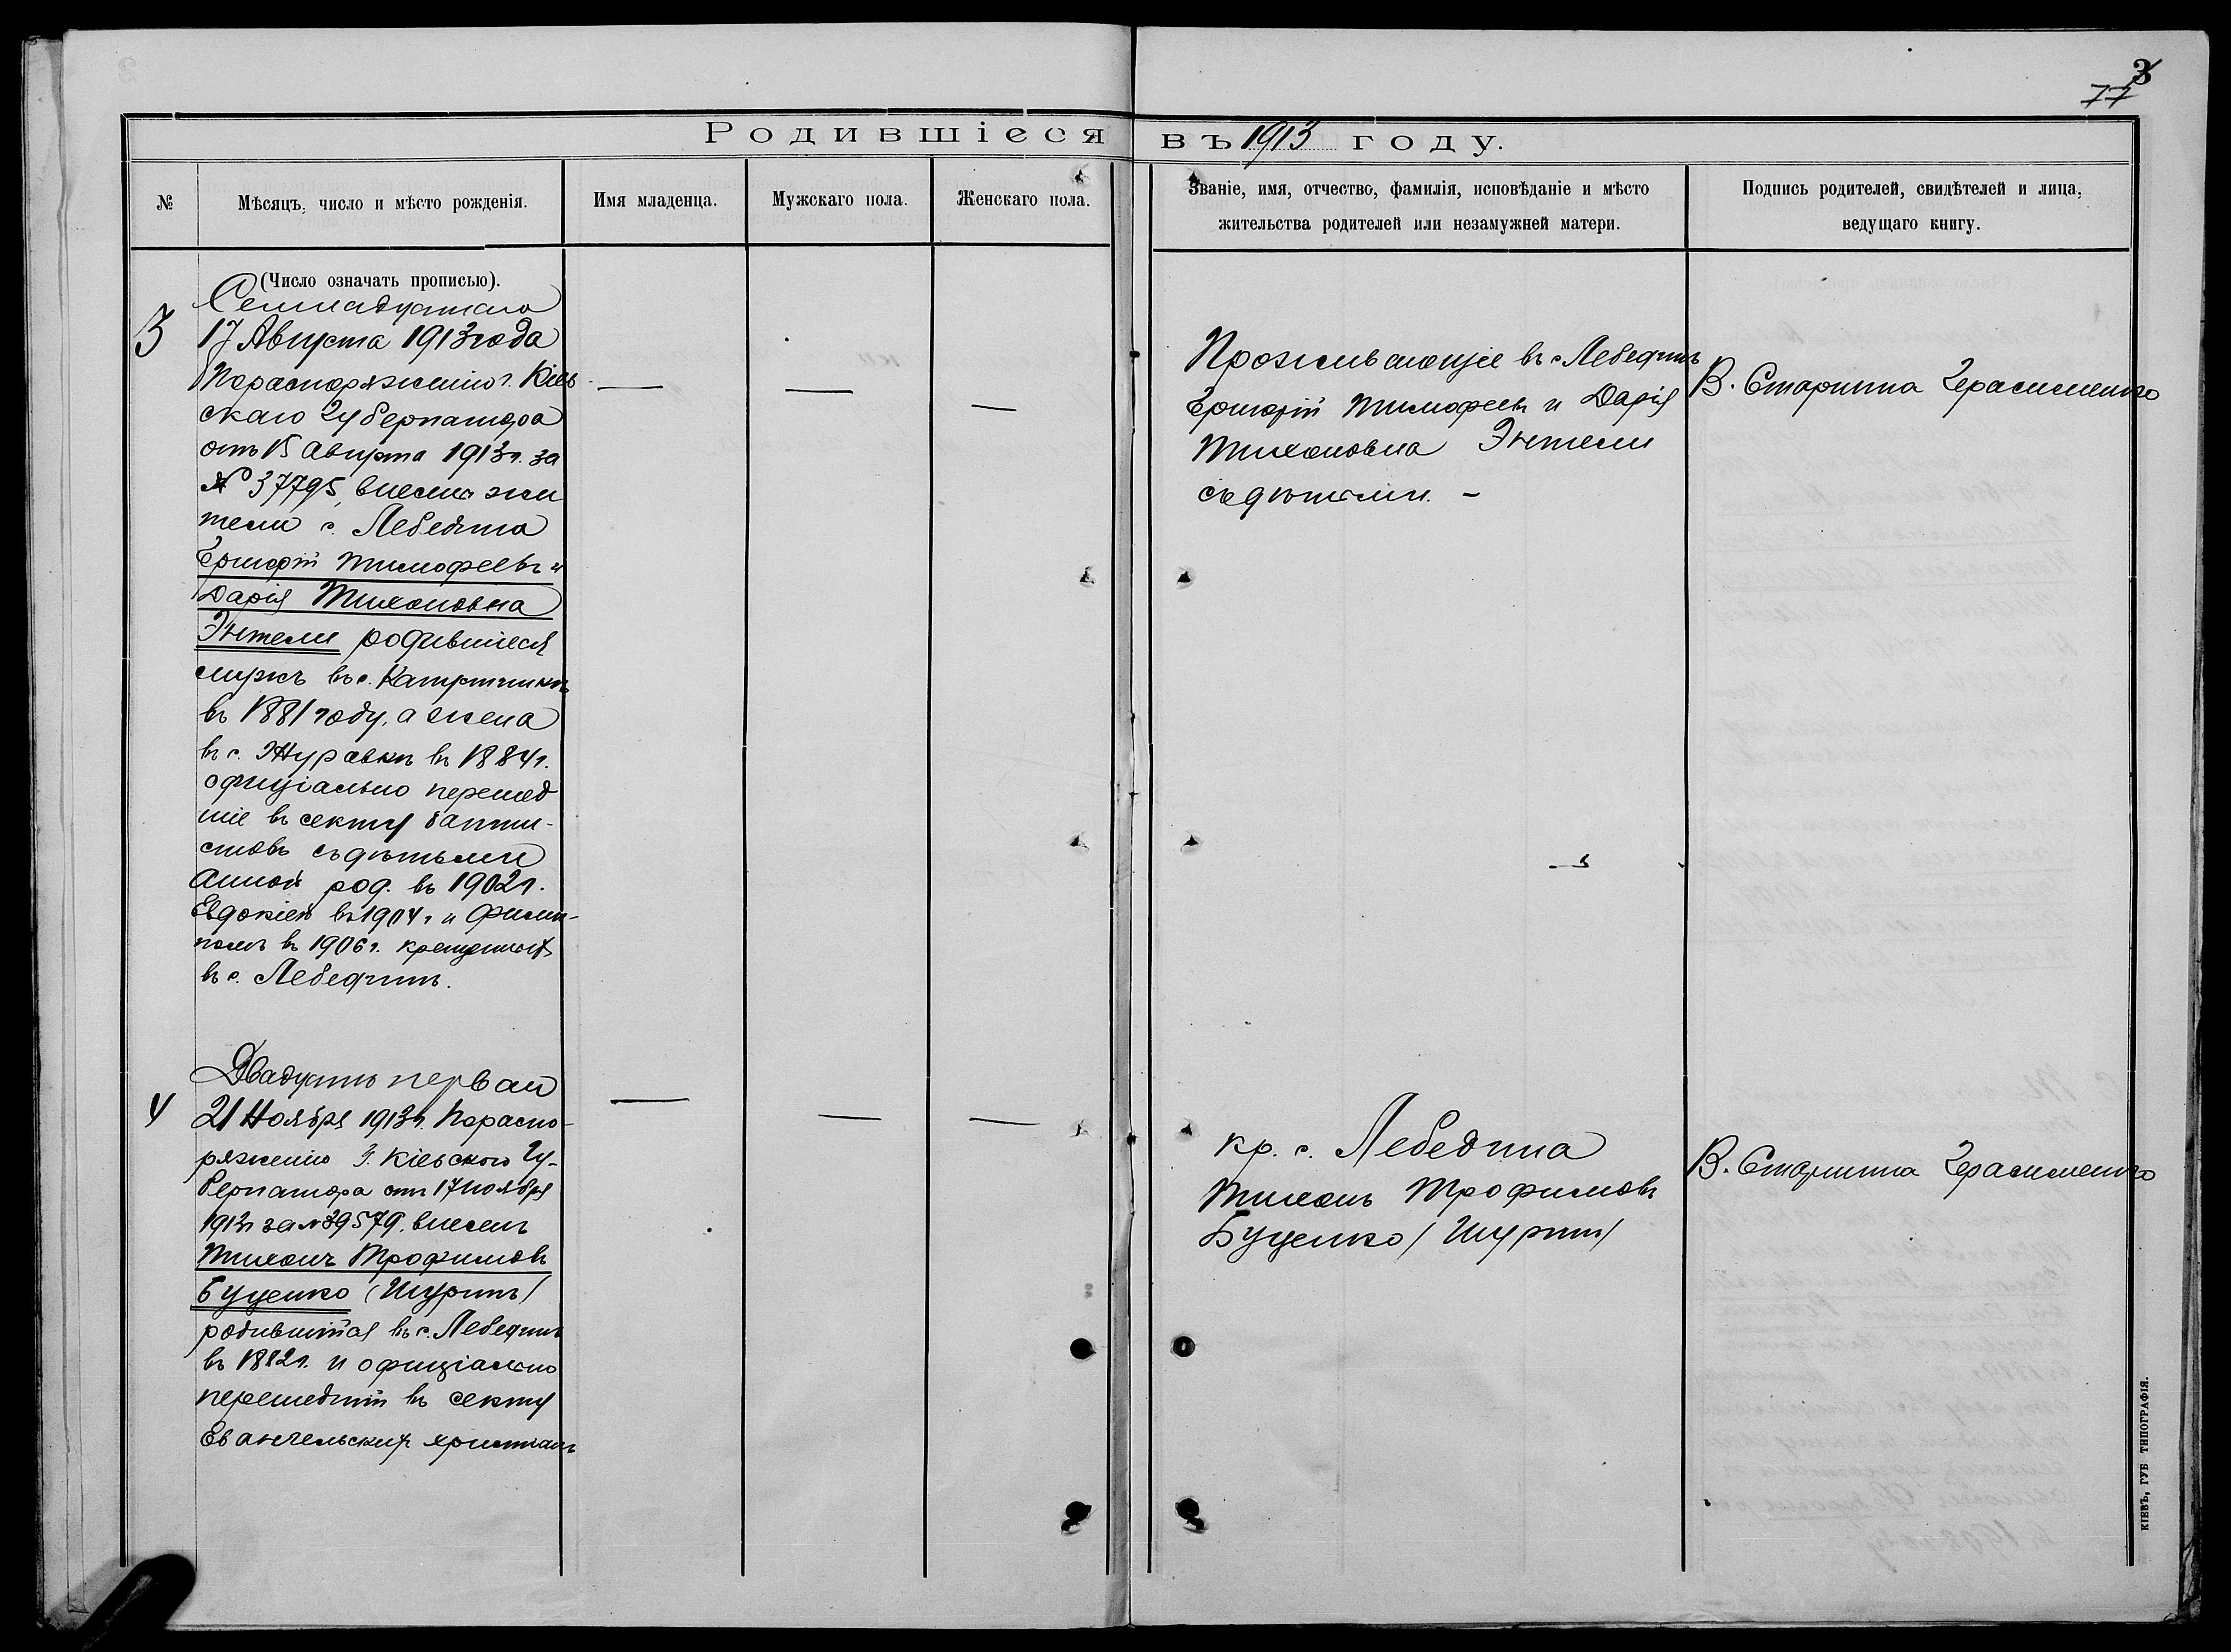 3
77
Родившіеся въ 1913 году.
№
Мѣсяцъ, число и мѣсто рожденія.
Имя младенца.
Мужскаго пола.
Женскаго пола.
Званіе, имя, отчество, фамилія, исповѣданіе и мѣсто
жительства родителей или незамужней матери.
Подпись родителей, свидѣтелей и лица,
ведущаго книгу.
(Число означать прописью).
3
Семнадцатаго
17 Августа 1913 года
По распоряженію г. Кіев
скаго Губернатора
отъ 15 Августа 1913 г. за
№ 37795, внесены жи
тели с. Лебедина
Григорій Тимофеевъ и
Дарія Тихоновна
родившіеся
мужъ въ с.
въ 1881 году, а жена
въ с. Журавкѣ въ 1884 г.
офиціально перешед
шіе въ секту бапти-
стовъ съ дѣтьми
Анной род. въ 1902 г.
Евдокіей въ 1904 г. и Филип-
помъ въ 1906 г. крещенныхъ
въ с. Лебединѣ.
— — —
Проживающіе въ с. Лебединѣ
Григорій Тимофеевъ и Дарія
Тихоновна
съ дѣтьми. –
В. Старшина Герасименко
4
Двадцать перваго
21 Ноября 1913 г. По распо-
ряженію Г. Кіевскаго Гу-
бернатора отъ 17 ноября
1913 г. за № 39579. внесенъ
Тихонъ Трофимовъ
Буценко (Шуринъ)
родившійся въ с. Лебединѣ
въ 1882 г. и офиціально
перешедшій въ секту
Евангельскихъ христіанъ
— — —
кр. с. Лебедина
Тихонъ Трофимовъ
Буценко / Шуринъ /
В. Старшина Герасименко
КІЕВЪ, ГУБ ТИПОГРАФІЯ.